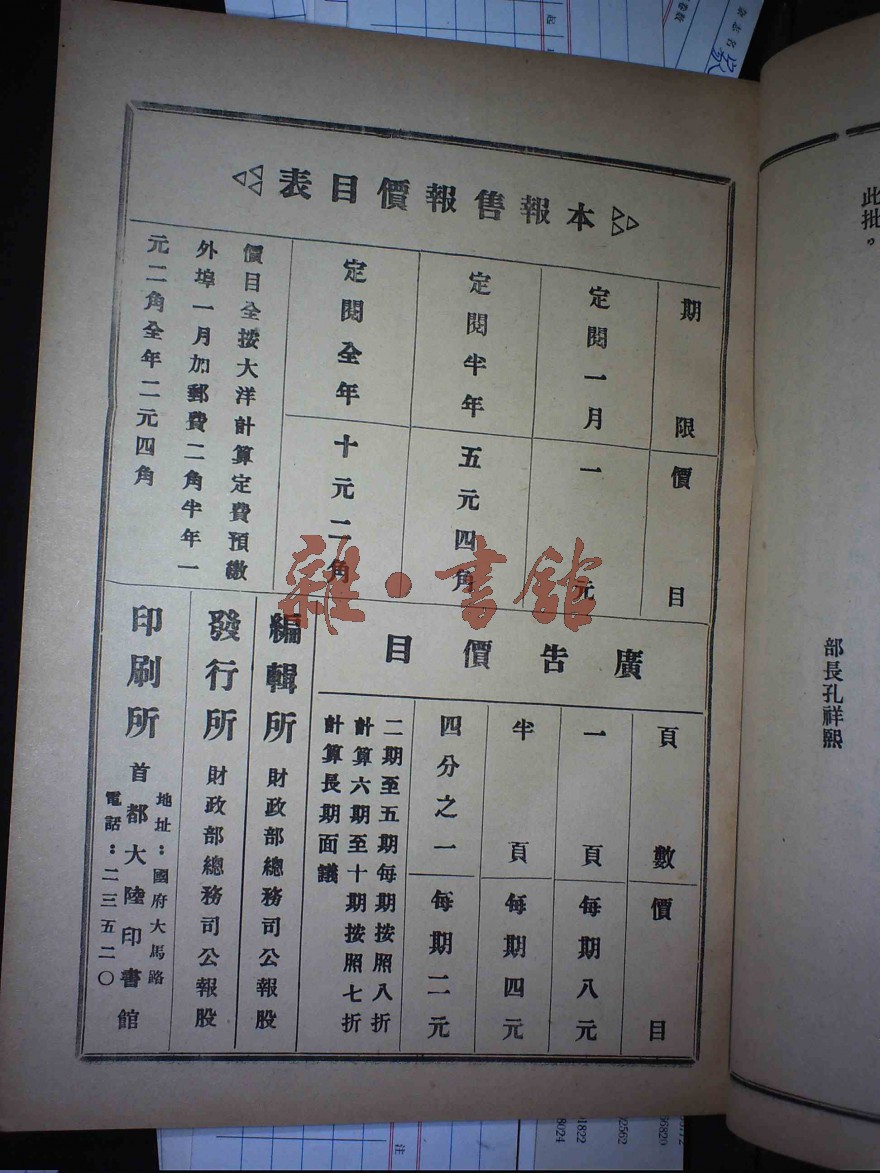 此批。
部長孔祥熙
本報售報價目表
期限 價目
定閱一月 一元
定閱半年 五元四角
定閱全年 十元二角
價目全按大洋計算定費預繳
外埠一月加郵費二角半年一
元二角全年二元四角
廣告價目
頁數 價目
一頁 每期八元
半頁 每期四元
四分之一 每期二元
二期至五期每期按照八折
計算六期至十期按照七折
計算長期面議
編輯所 財政部總務司公報股
發行所 財政部總務司公報股
印刷所 首都大陸印書館
地址：國府大馬路
電話：二三五二〇
雜·書館